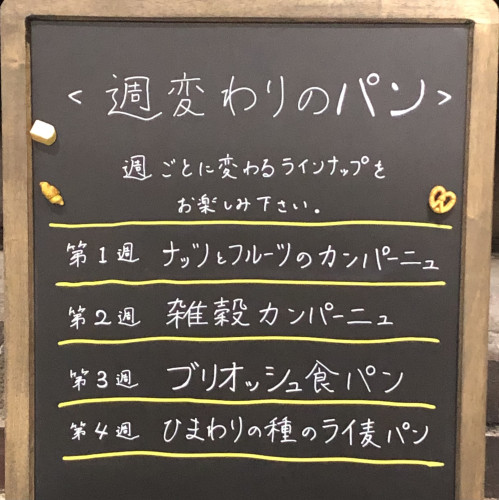 <週変わりのパン>
週ごとに変わるラインナップを
お楽しみ下さい。
第1週 ナッツとフルーツのカンパーニュ
第2週 雑穀カンパーニュ
第3週 ブリオッシュ食パン
第4週 ひまわりの種のライ麦パン